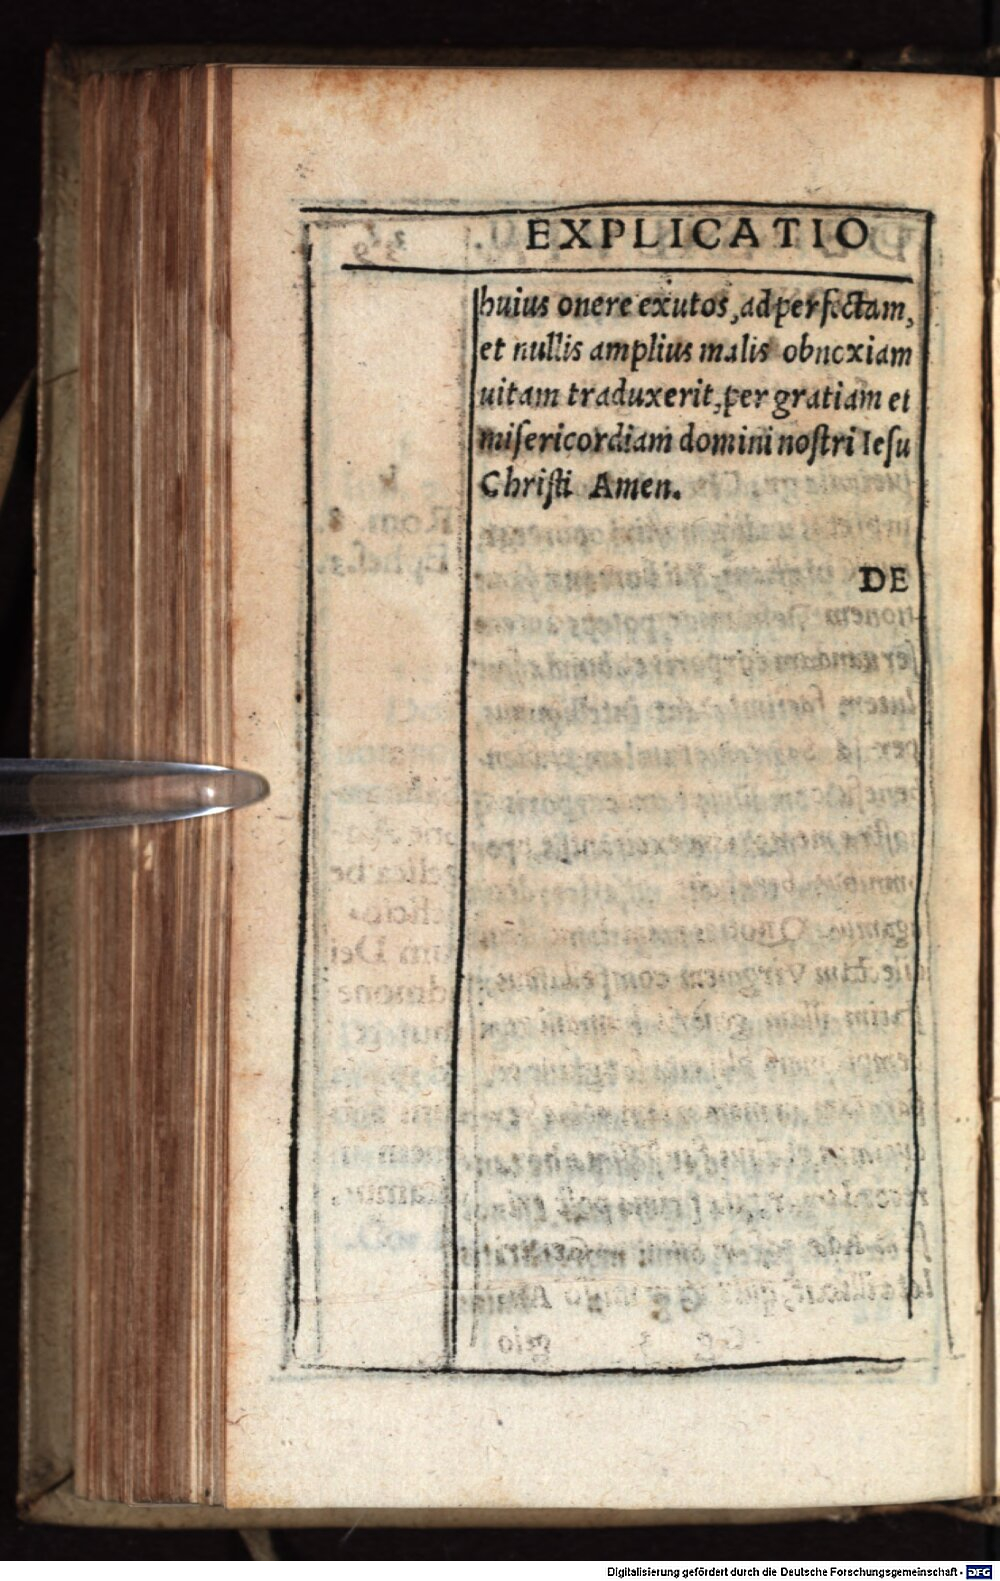 EXPLICATIO
huius onere exutos, ad perfectam,
et nullis amplius malis obnoxiam
uitam traduxerit, per gratiam et
misericordiam domini nostri Iesu
Christi Amen.
DE
Digitalisierung gefördert durch die Deutsche Forschungsgemeinschaft - DFG